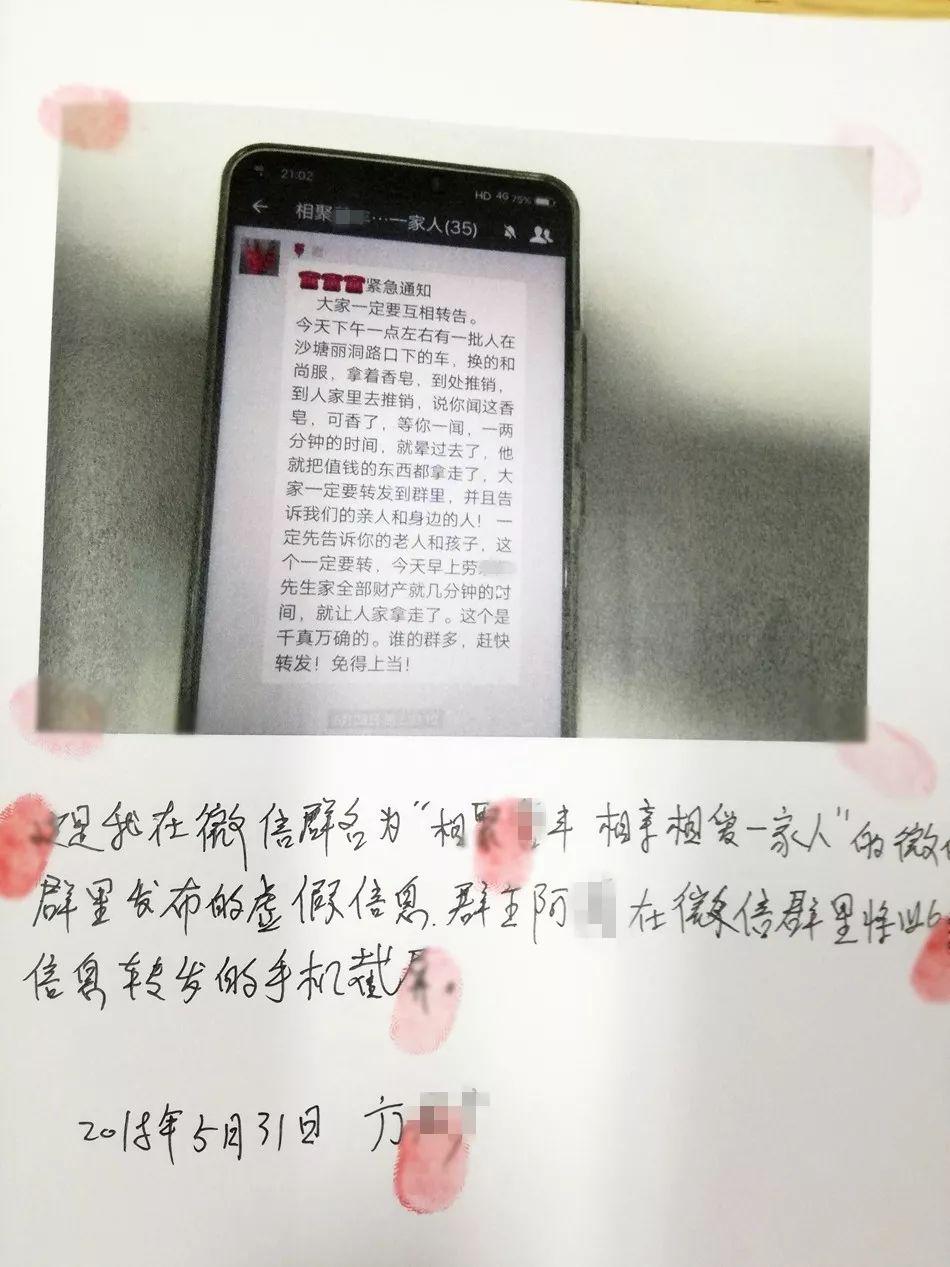 21:02
HD 4G 75%
相聚 …一家人(35)
紧急通知
大家一定要互相转告。
今天下午一点左右有一批人在
沙塘丽洞路口下的车，换的和
尚服，拿着香皂，到处推销，
到人家里去推销，说你闻这香
皂，可香了，等你一闻，一两
分钟的时间，就晕过去了，他
就把值钱的东西都拿走了，大
家一定要转发到群里，并且告
诉我们的亲人和身边的人！一
定先告诉你的老人和孩子，这
个一定要转，今天早上劳
先生家全部财产就几分钟的时
间，就让人家拿走了。这个是
千真万确的。谁的群多，赶快
转发！免得上当！
这是我在微信群名为“相聚 年 相亲相爱一家人”的微信
群里发布的虚假信息.群主阿 在微信群里将此
信息转发的手机截屏.
5月31日 方